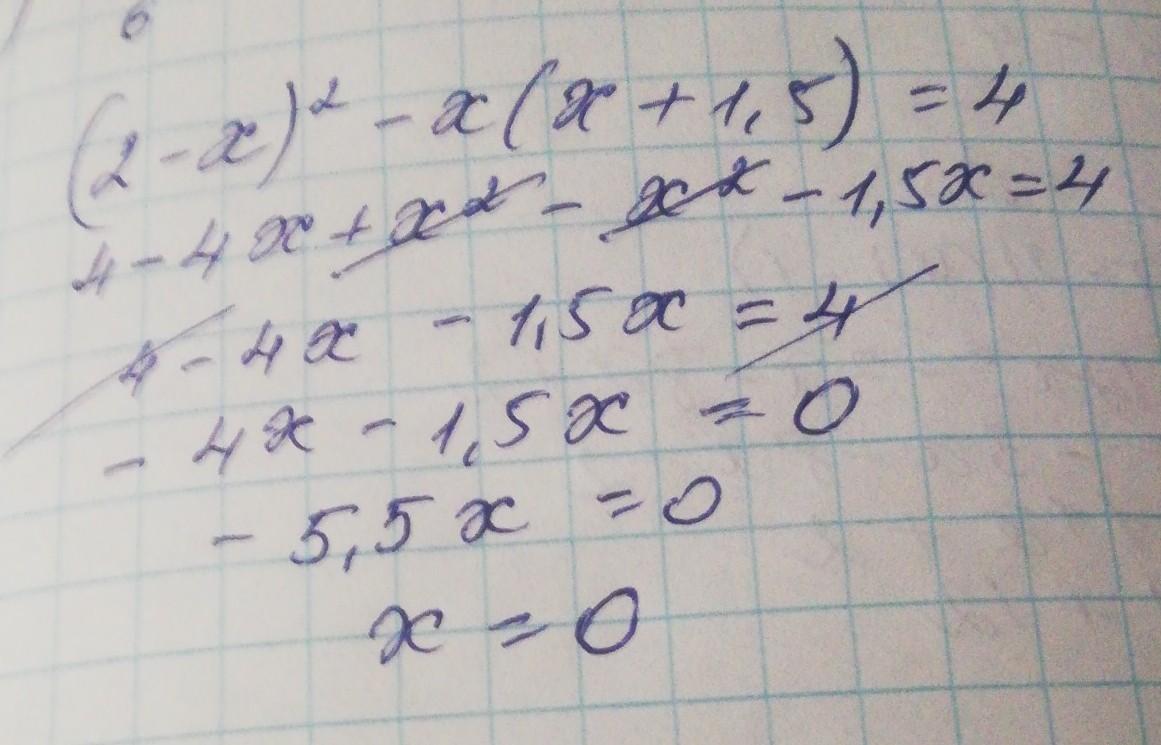 6
(2-x)² - x(x+1,5) = 4
4 - 4x + x² - x² - 1,5x = 4
4 - 4x - 1,5x = 4
- 4x - 1,5x = 0
- 5,5x = 0
x = 0